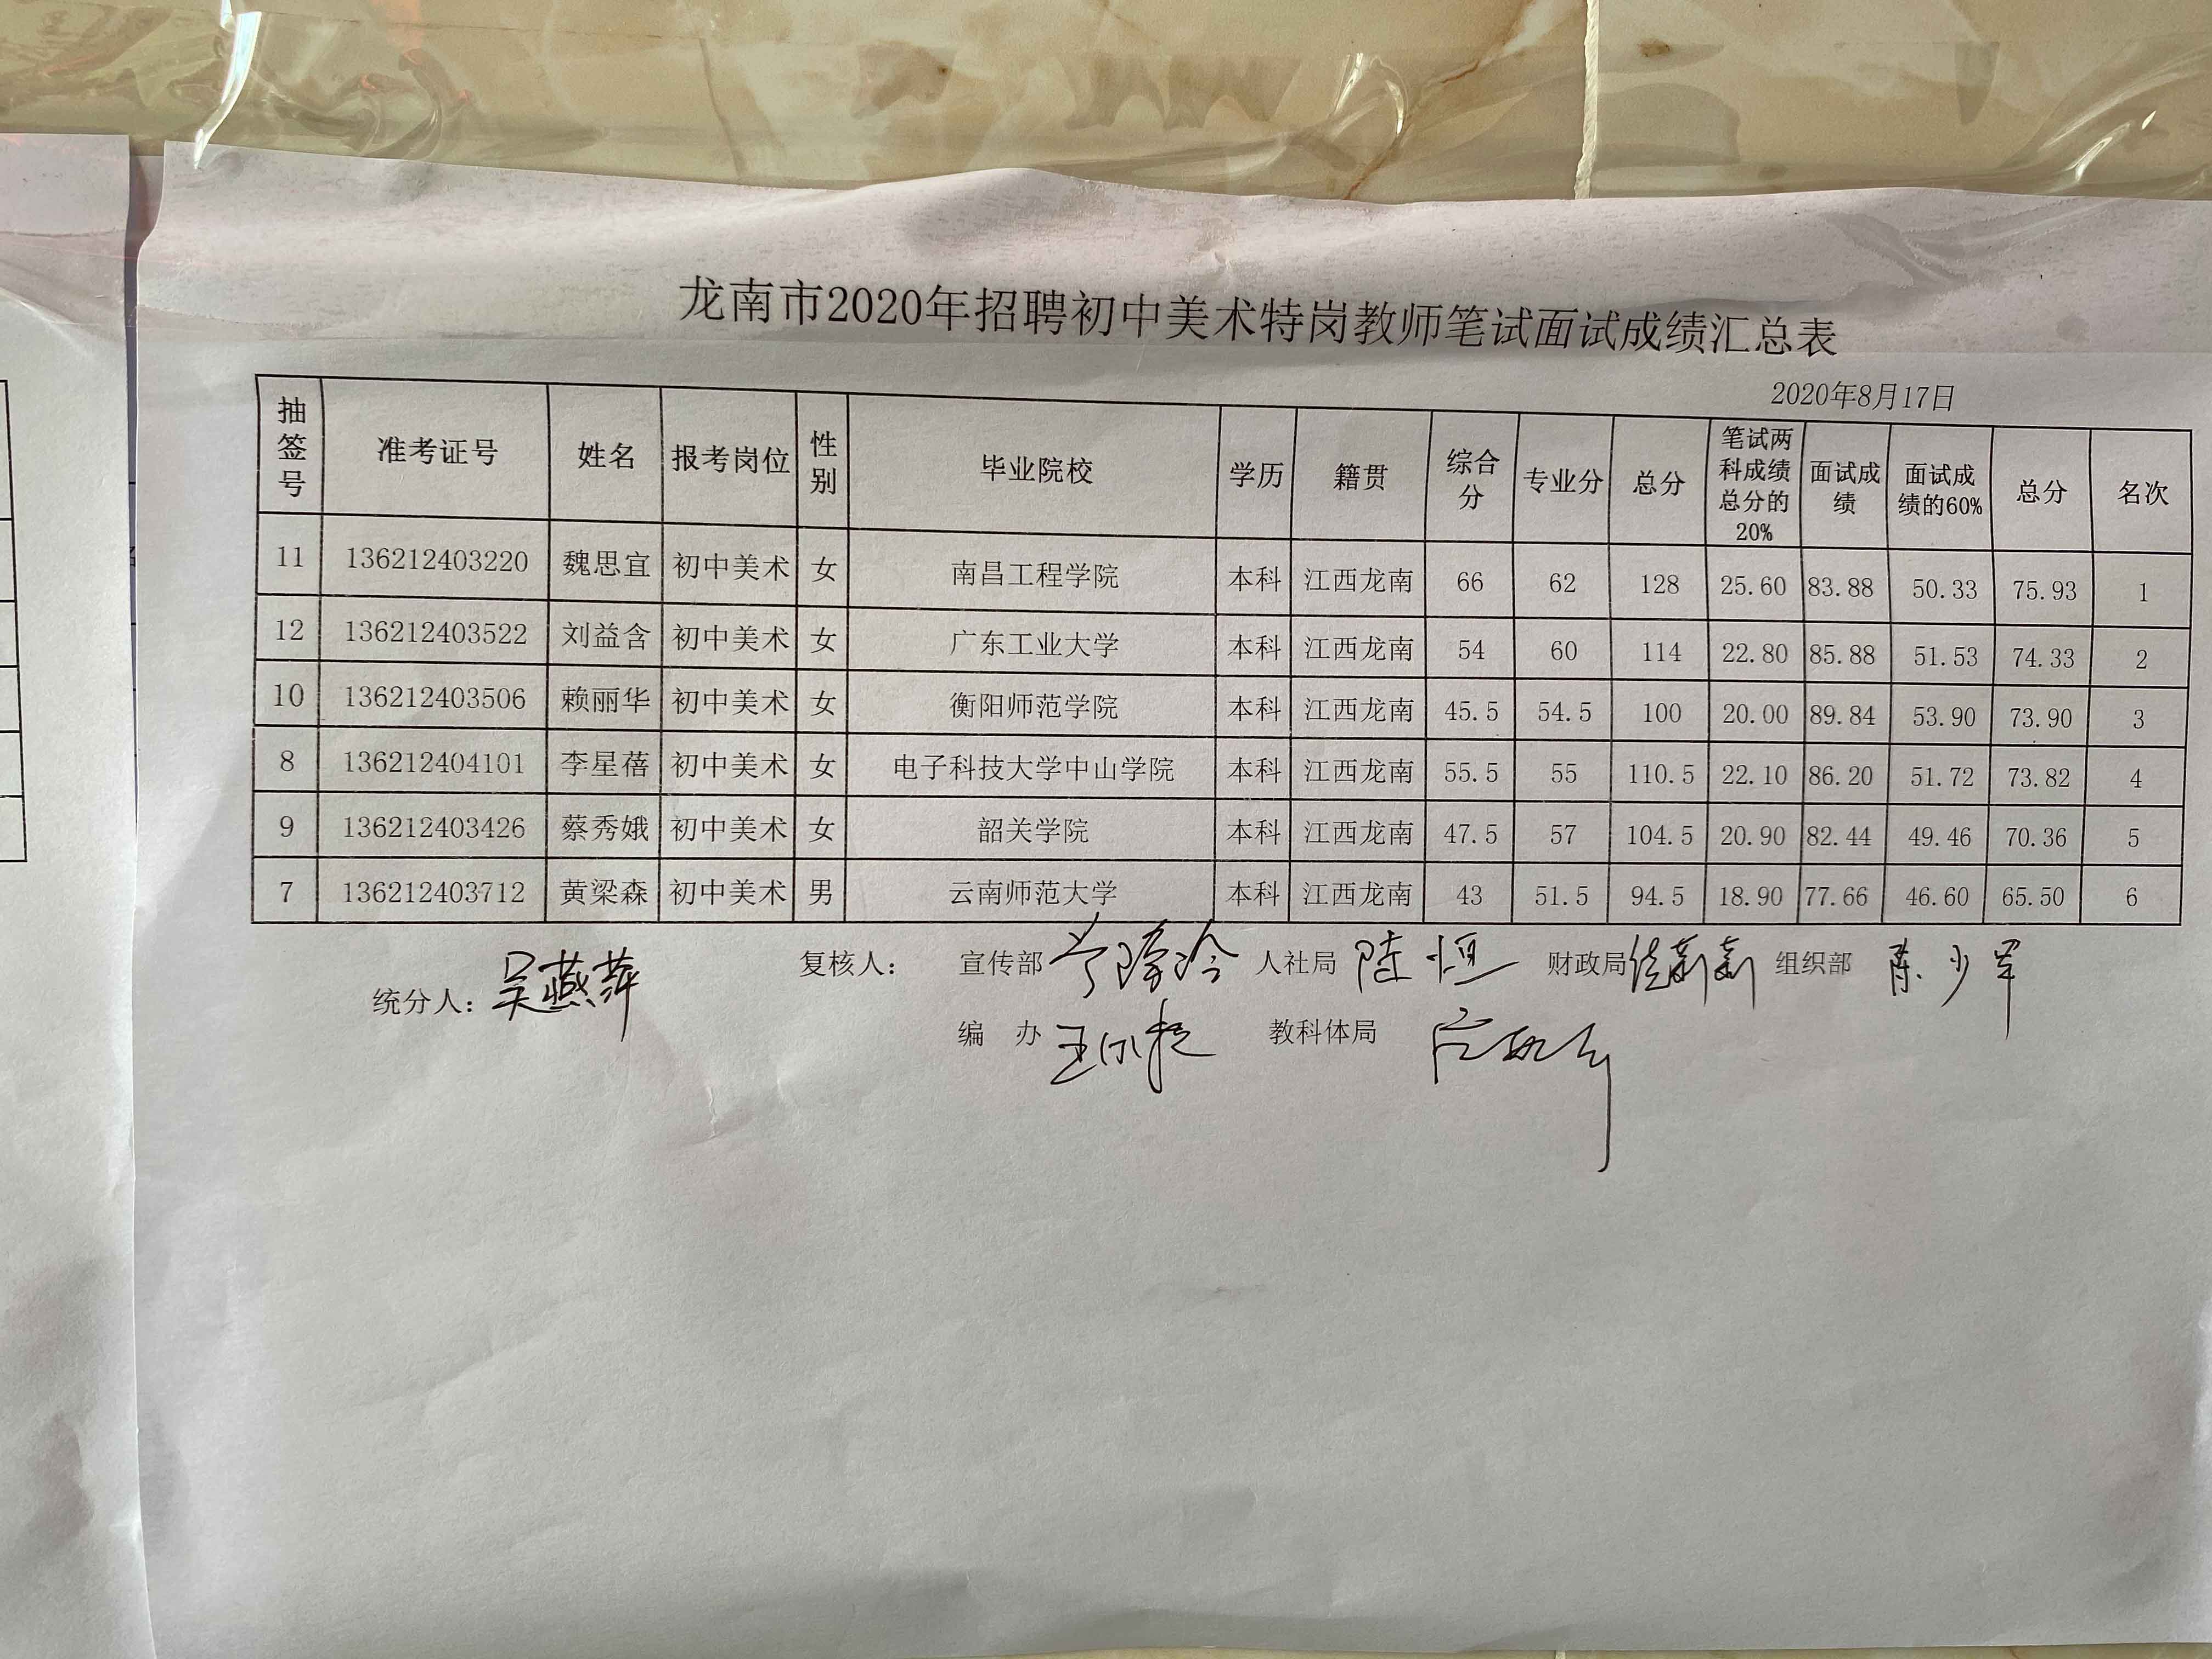 龙南市2020年招聘初中美术特岗教师笔试面试成绩汇总表
2020年8月17日
抽签号 准考证号 姓名 报考岗位 性别 毕业院校 学历 籍贯 综合分 专业分 总分 笔试两科成绩总分的20% 面试成绩 面试成绩的60% 总分 名次
11 136212403220 魏思宜 初中美术 女 南昌工程学院 本科 江西龙南 66 62 128 25.60 83.88 50.33 75.93 1
12 136212403522 刘益含 初中美术 女 广东工业大学 本科 江西龙南 54 60 114 22.80 85.88 51.53 74.33 2
10 136212403506 赖丽华 初中美术 女 衡阳师范学院 本科 江西龙南 45.5 54.5 100 20.00 89.84 53.90 73.90 3
8 136212404101 李星蓓 初中美术 女 电子科技大学中山学院 本科 江西龙南 55.5 55 110.5 22.10 86.20 51.72 73.82 4
9 136212403426 蔡秀娥 初中美术 女 韶关学院 本科 江西龙南 47.5 57 104.5 20.90 82.44 49.46 70.36 5
7 136212403712 黄梁森 初中美术 男 云南师范大学 本科 江西龙南 43 51.5 94.5 18.90 77.66 46.60 65.50 6
统分人：吴燕萍 复核人： 宣传部 人社局 陆恒 财政局 组织部
编 办 教科体局